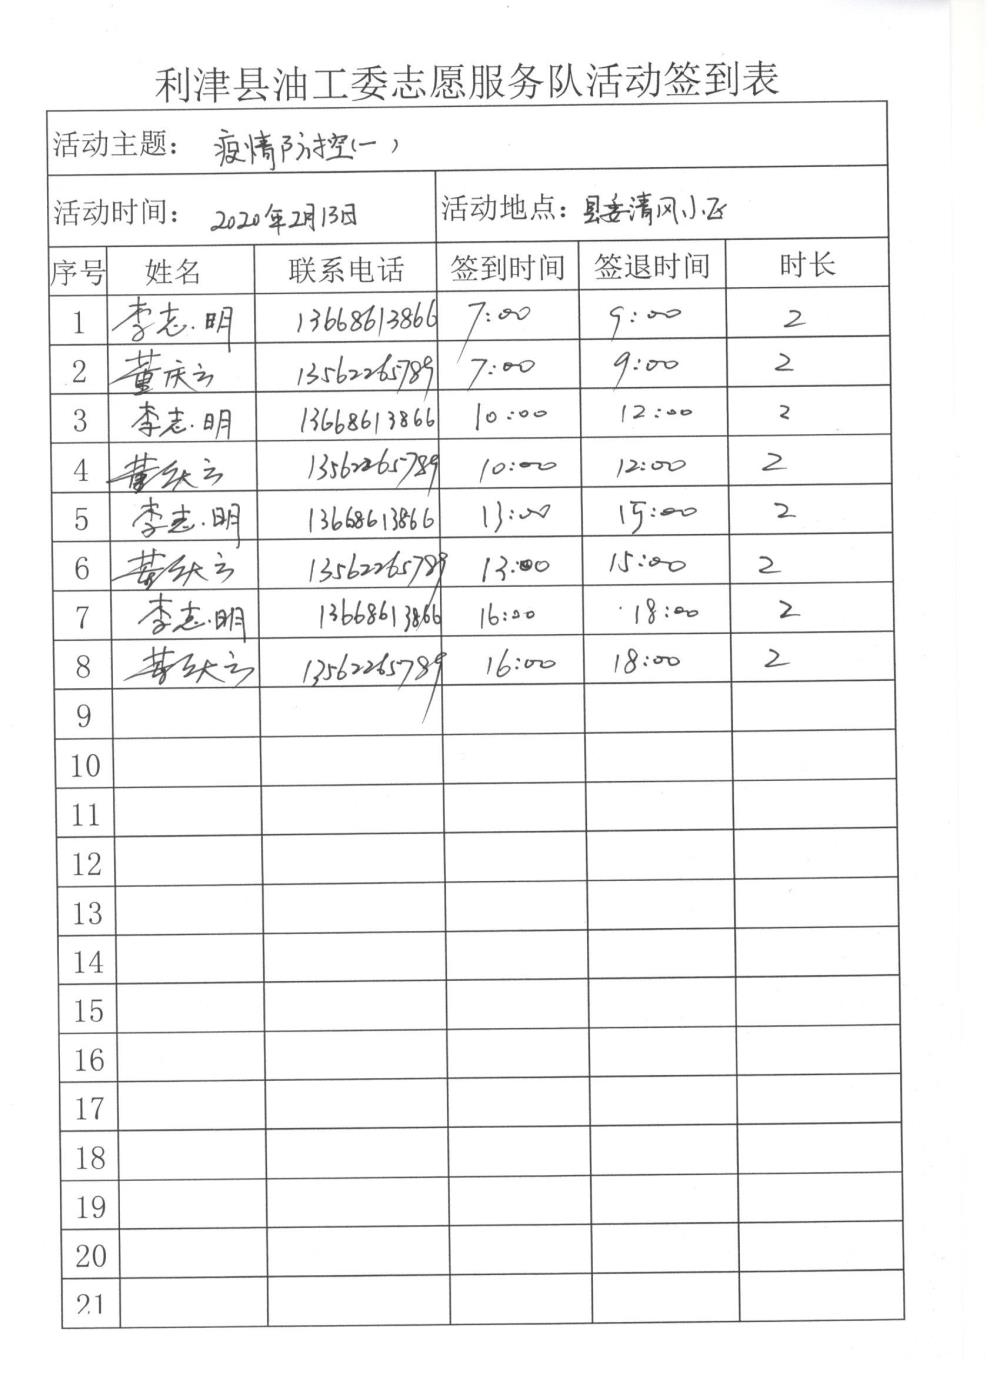 利津县油工委志愿服务队活动签到表
活动主题： 疫情防控(一)
活动时间： 2020年2月13日 活动地点：县委清风小区
序号 姓名 联系电话 签到时间 签退时间 时长
1 李志明 13668613866 7:00 9:00 2
2 董庆云 13562265789 7:00 9:00 2
3 李志明 13668613866 10:00 12:00 2
4 董庆云 13562265789 10:00 12:00 2
5 李志明 13668613866 13:00 15:00 2
6 董庆云 13562265789 13:00 15:00 2
7 李志明 13668613866 16:00 18:00 2
8 董庆云 13562265789 16:00 18:00 2
9
10
11
12
13
14
15
16
17
18
19
20
21